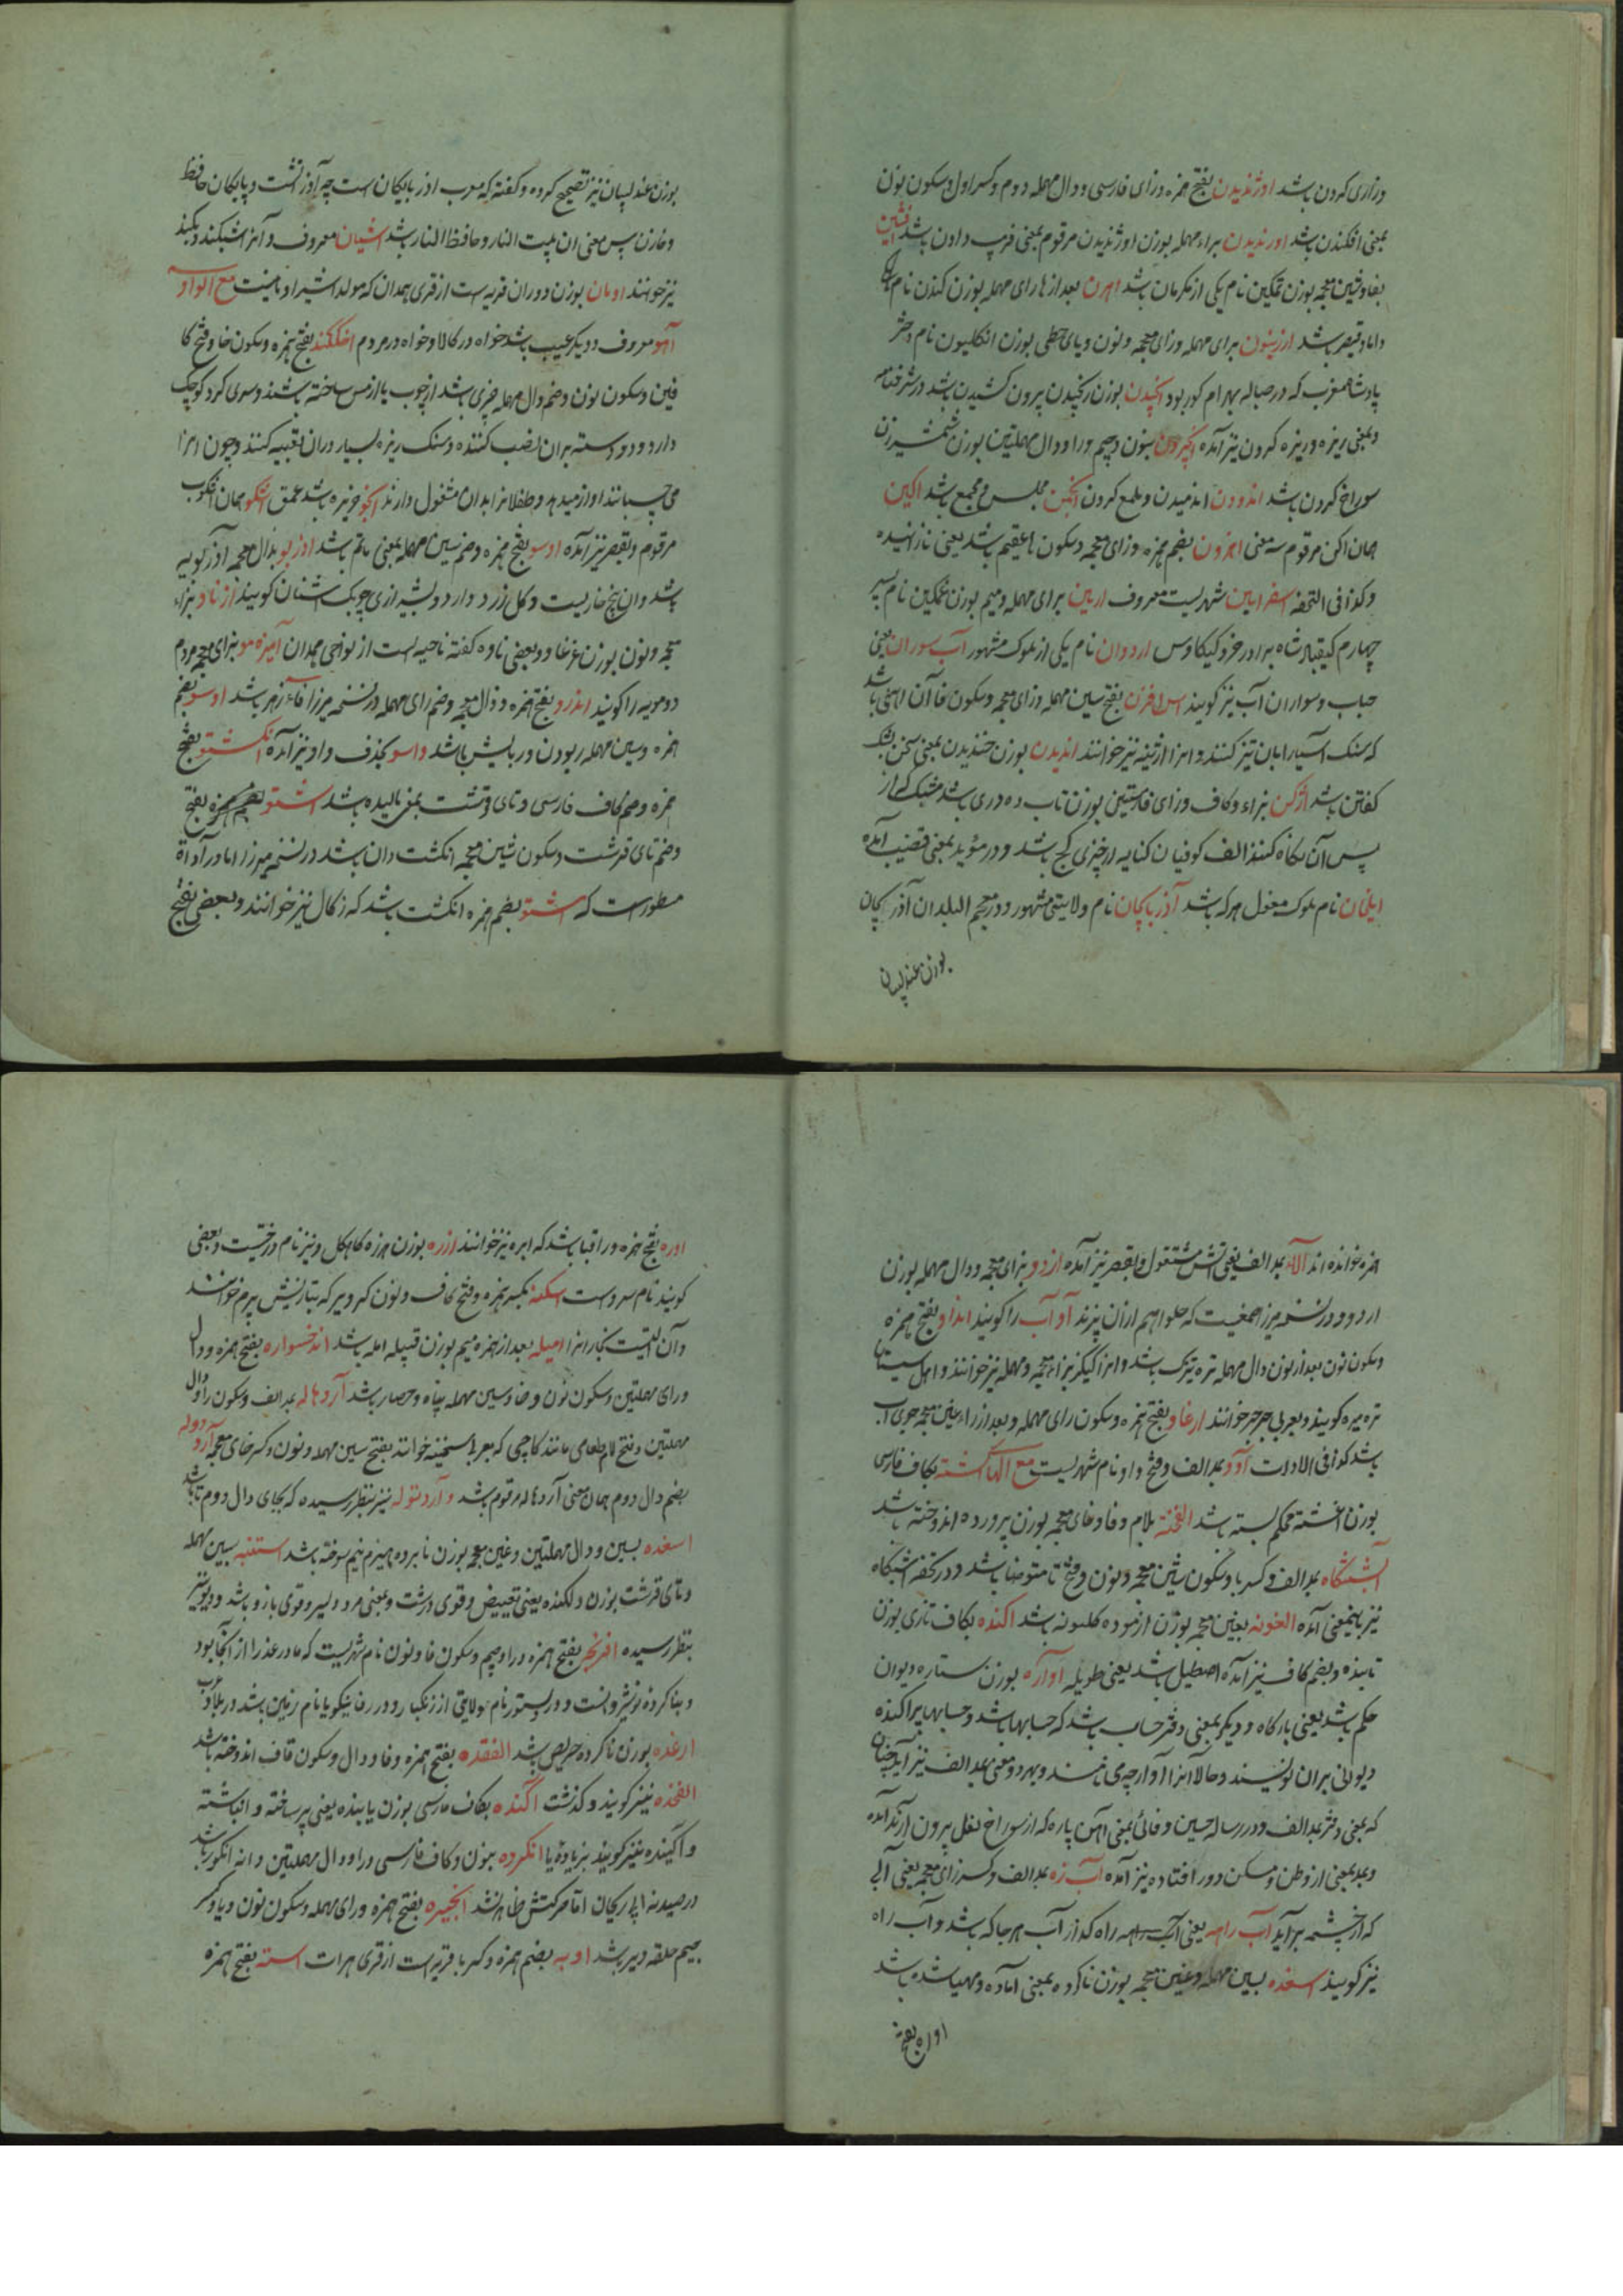 وزاری کردن باشد اوژندیدن بفتح همزه وزای فارسی ودال مهمله دوم وکسر اول وسکون نون
بمعنی افکندن باشد اورندیدن براء مهمله بوزن اوژندیدن مرقوم بمعنی فریب دادن باشد افشین
بفا وشین معجمه بوزن تمکین نام یکی از مکرمان باشد اهرن بعد از ها رای مهمله بوزن کندن نام
داماد قیصر باشد ارزینون برای مهمله وزای معجمه ونون ویای حطی بوزن انکلیون نام دختر
پادشاه مغرب که در حباله بهرام کور بود انجیدن بوزن رنجیدن بیرون کشیدن باشد در شرفنامه
وبمعنی ریزه وریزه کردن نیز آمده انجردن بنون وجیم ورا ودال مهملتین بوزن شمشیرزن
سوراخ کردن باشد اندودن اندمیدن وملمع کردن انجمن مجلس ومجمع باشد اکین
همان اکن مرقوم سه معنی اخزون بضم همزه وزای معجمه وسکون عقیم باشد یعنی نازائیده
وکذا فی التحفه اسفراین شهریست معروف ارمین برای مهمله ومیم بوزن غمکین نام پسر
چهارم کیقباد شاه برادر خرد کیکاوس اردوان نام یکی از ملوک مشهور آب سوران یعنی
حباب وسواران آب نیز کویند اس افزن بفتح سین مهمله وزای معجمه وسکون فا آن آهنی باشد
که سنک آسیا را بان تیز کنند وانرا آژینه نیز خوانند اندیدن بوزن خندیدن بمعنی سخن بشک
کفتن باشد اژکن بزاء وکاف وزای فارسیتین بوزن تاب ده دری باشد مشبک که از
پس آن نکاه کنند الف کوفیان کنایه از چیزی کج باشد ودر مؤید بمعنی قضیب آمده
ایلخان نام ملوک مغول هر که باشد آذربایجان نام ولایتی مشهور ودر معجم البلدان آذربیجان
بوزن عندلیبان
بوزن عندلیبان نیز تصحیح کرده وکفته که معرب اذربایکان است چه آذر آتش است وبایکان حافظ
وخازن پس معنی ان بیت النار وحافظ النار باشد اشیان معروف وآنرا اشکند ویکند
نیز خوانند اومان بوزن دوران قریه است از قری همدان که مولد اثیر اومانیست مع الواو
آهو معروف دویکر عیب باشد خواه در کالا وخواه در مردم اخلکندو بفتح همزه وسکون خا وفتح کا
فین وسکون نون وضم دال مهمله چیزی باشد از چوب یا از مس ساخته باشند وسری کرد کوچک
دارد ودو دسته بران نصب کنند وسنک ریزه بسیار دران تعبیه کنند وچون انرا
می جنبانند اواز میدهد وطفلانرا بدان مشغول دارند انجو جزیره باشد عمق اشکو همان اشکوب
مرقوم وبقصر نیز آمده اوسو بفتح همزه وضم سین مهمله بمعنی ماتم باشد اذربو بذال معجمه آذرکونیه
باشد وان بیخ خاریست وکل زرد دارد وبشیرازی چوبک اشنان کویند ازناو بزاء
معجمه ونون بوزن غرغاو وبعضی ناوه کفته ناحیه است از نواحی همدان آمیزه مو بزای معجمه مردم
دومویه را کویند اندرو بفتح همزه وذال معجمه وضم رای مهمله در نسخه میرزا فاء زهر باشد اوسو بضم
همزه وسین مهمله ربودن ورباینده باشد واسو بحذف واو نیز آمده انکشتو بفتح
همزه وضم کاف فارسی وتای قرشت بمعنی مالیده باشد اشتو بضم همزه
وضم تای قرشت وسکون شین معجمه انکشت دان باشد در نسخه میرزا اما در آداة
مسطور است که اشتو بضم همزه انکشت باشد که زکال نیز خوانند وبعضی بفتح
همزه خوانده اند آلاو بمد الف یعنی آتش مشتعل وبقصر نیز آمده ازدو بزای معجمه ودال مهمله بوزن
اردو ودر نسخه میرزا صمغیست که حلوا هم ازان پزند آو آب را کویند انداو بفتح همزه
وسکون نون بعد از نون دال مهمله تره تیزک باشد وانرا کیکیز بزاء معجمه ومهمله نیز خوانند واهل سیستان
تره میره کویند وبعربی جرجیر خوانند ارغاو بفتح همزه وسکون رای مهمله وبعد از راء غین معجمه جوی آب
باشد کذا فی الادات آوو بمد الف وفتح واو نام شهریست مع الهاء اکشته بکاف فارسی
بوزن اغشته محکم بسته باشد الفخته بلام وفا وخای معجمه بوزن پرورده اندوخته باشد
آبشتکاه بمد الف وکسر با وسکون شین معجمه ونون وفتح تا متوضا باشد ودر تحفه ابشتکاه
نیز باینمعنی آمده الغونه بغین معجمه بوزن ازموده کلکونه باشد اکنده بکاف تازی بوزن
تابنده وبضم کاف نیز آمده اصطبل باشد یعنی طویله اوآره بوزن ستاره دیوان
حکم باشد یعنی بارکاه ودیکر بمعنی دفتر حساب باشد که حسابها باشد وحسابهای پراکنده
دیوانی بران نویسند وحالا انرا آوارچه می نامند وبهر دو معنی بمد الف نیز آمده چنان
که بمعنی دفتر بمد الف ودر رساله حسین وفائی بمعنی آهن پاره که از سوراخ نعل بیرون آرند آمده
وبمد بمعنی از وطن ومسکن دور افتاده نیز آمده آب زه بمد الف وکسر زای معجمه یعنی آبی
که از چشمه برآید آب راهه یعنی آب راه کذر آب هر جا که باشد وآب راه
نیز کویند اسغده بسین مهمله وغین معجمه بوزن ناکرده بمعنی اماده ومهیا شده باشد
اوره بفتح
اوره بفتح همزه ورا قبا باشد که ابره نیز خوانند ازره بوزن هرزه کاهکل ونیز نام درختیست وبعضی
کویند نام سرو است اسکنه بکسر همزه وفتح کاف ونون کردبر که بتازیش بیرم خوانند
وآن آلتیست نجار انرا امیله بعد از همزه میم بوزن قبیله امله باشد اندخسواره بفتح همزه ودال
ورای مهملتین وسکون نون وخا وسین مهمله پناه وحصار باشد آردهاله بمد الف وسکون را ودال
مهملتین وفتح لام طعامی مانند کاچی که بعربی سخینه خوانند بفتح سین مهمله ونون وکسر خای معجمه آردوله
بضم دال دوم همان معنی آردهاله مرقوم باشد وآردتوله نیز بنظر رسیده که بجای دال دوم تا باشد
اسغده بسین ودال مهملتین وغین معجمه بوزن نابرده هیزم نیم سوخته باشد استنبه بسین مهمله
وتای قرشت بوزن دلکنده یعنی قبیض وقوی درشت وبمعنی مرد دلیر وقوی بازو باشد ودیو نیز
بنظر رسیده افرنجه بفتح همزه ورا وجیم وسکون فا ونون نام شهریست که مادر عذرا از آنجا بود
وبنا کرده نوشیروانست ودر دستور نام ولایتی از زنکبار ودر رفا ینکو یا نام زمین باشد در بلاد غرب
ارغده بوزن ناکرده حریص باشد الفغده بفتح همزه وفا ودال وسکون قاف اندوخته باشد
الفخده نیز کویند وکذشت آکنده بکاف فارسی بوزن یابنده یعنی پر ساخته وانباشته
وآکینده نیز کویند بزیادة یا انکرده بنون وکاف فارسی ورا ودال مهملتین دانه انکور باشد
در صیدنه ابی ریحان اما حرکتش ظاهر نشد انجیره بفتح همزه ورای مهمله وسکون نون ویا وکسر
جیم حلقه دبر باشد اوبه بضم همزه وکسر با قریه است از قری هرات استه بفتح همزه